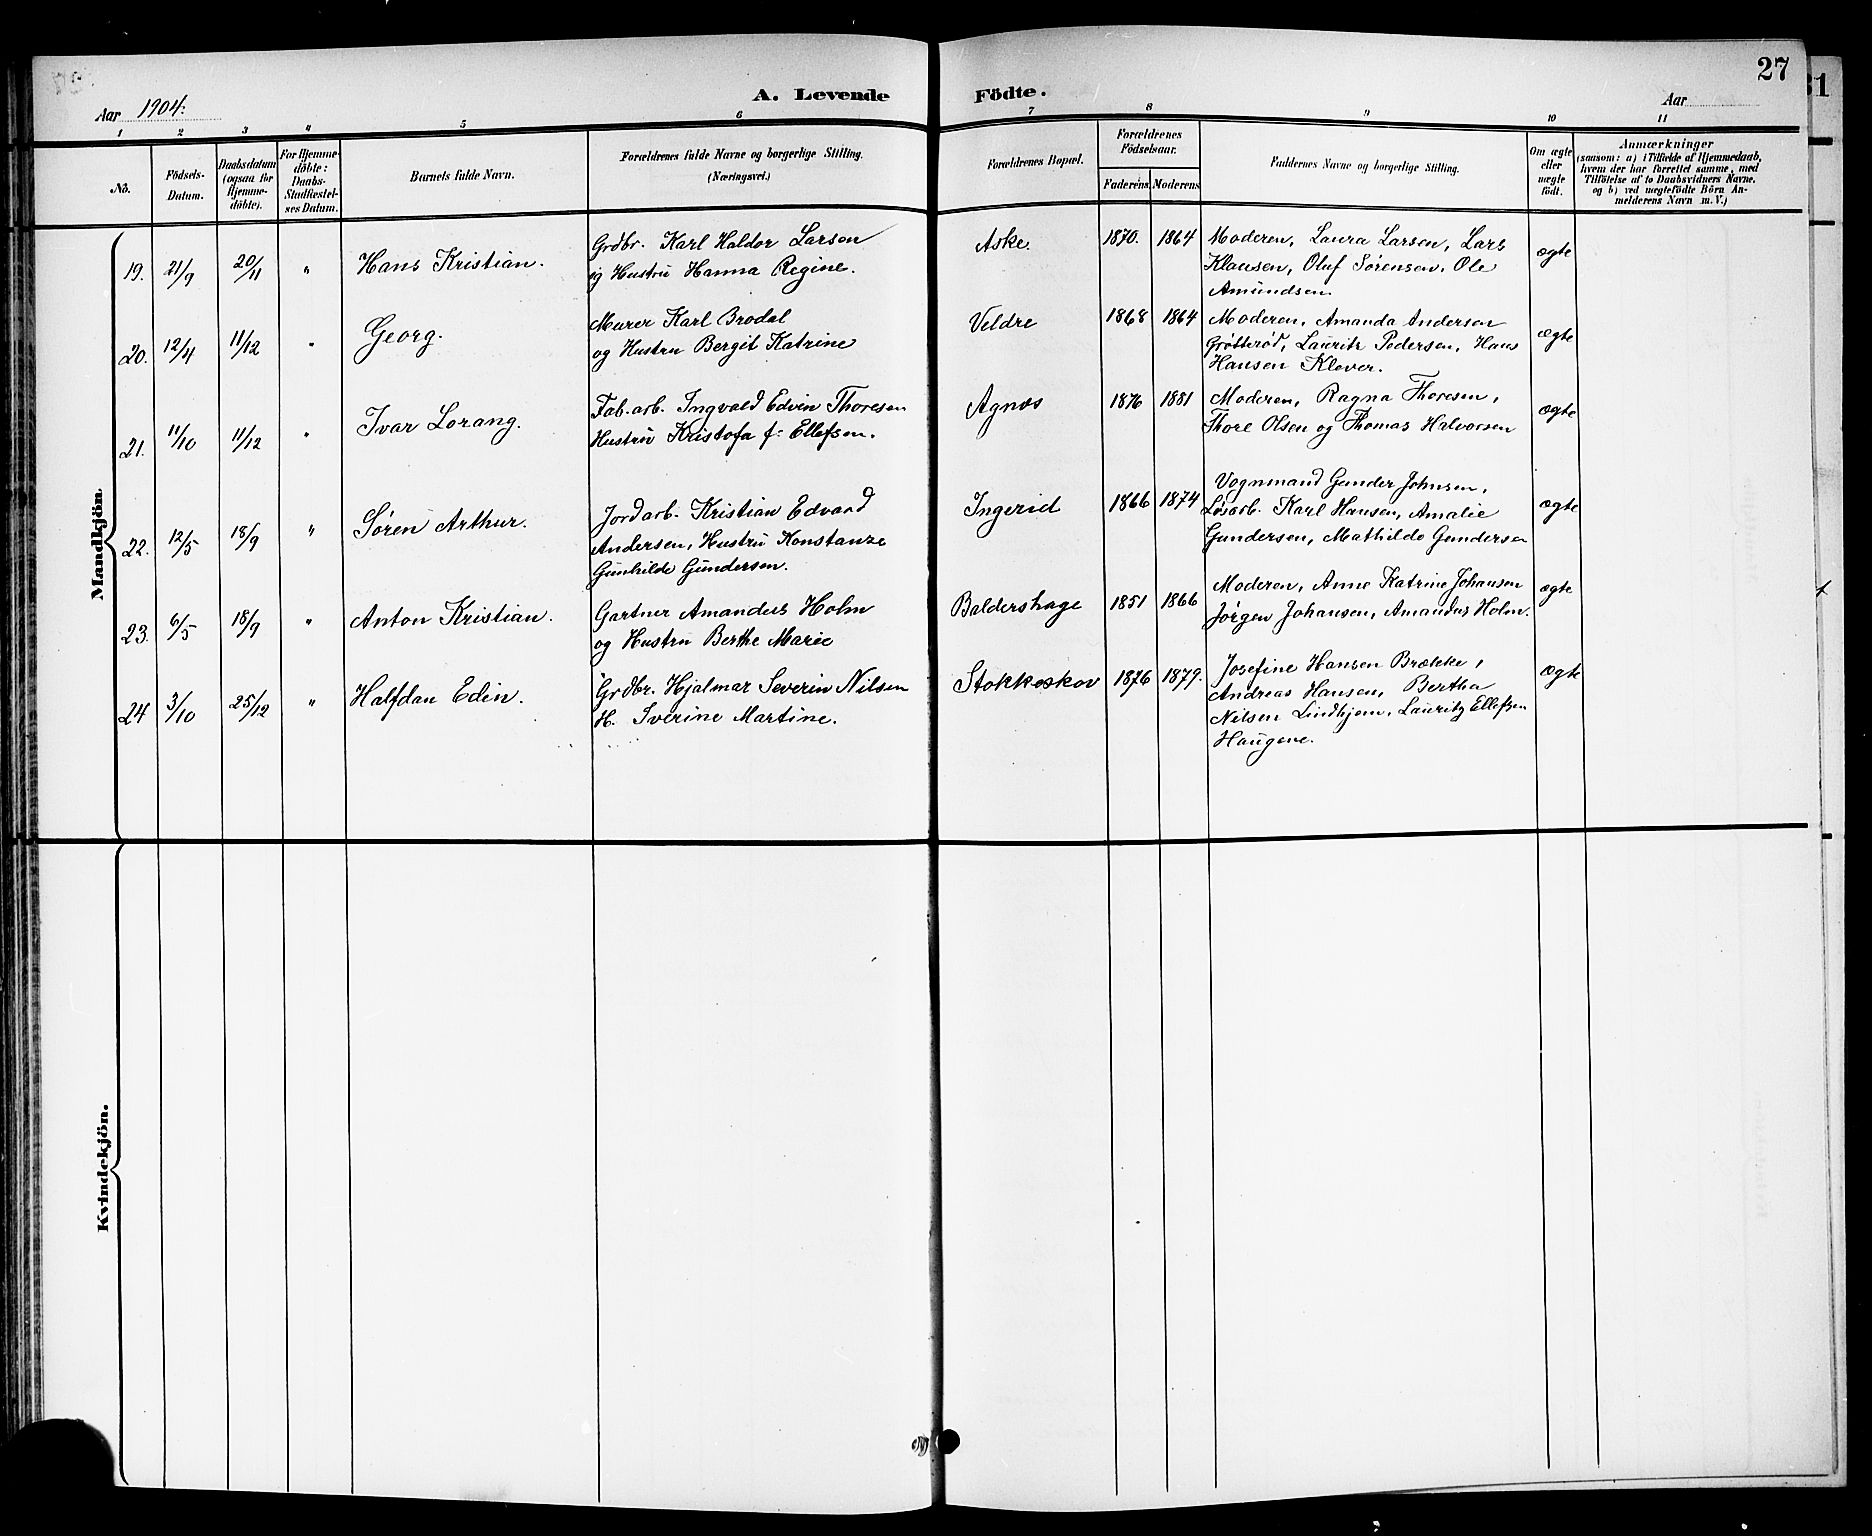 27
31
Aar 1904.
A. Levende Födte.
Aar
1 2 3 " 5 6 7 8 9 10 11
No.
Födsels-
Datum.
Daabsdatum
(ogsaa for
Hjemme-
döbte).
For Hjemme-
döbte:
Daabs-
Stadfæstel-
ses Datum.
Barnets fulde Navn.
Forældrenes fulde Navne og borgerlige Stilling.
(Næringsvei.)
Forældrenes Bopæl.
Forældrenes
Födselsaar.
Faderens Moderens
Faddernes Navne og borgerlige Stilling.
Om ægte
eller
uægte
födt.
Anmærkninger
(saasom: a) i Tilfælde af Hjemmedaab,
hvem der har forrettet samme, med
Tilföielse af to Daabsvidners Navne,
og b) ved uægtefödte Börn An-
melderens Navn m. V.)
Mandkjön.
19. 21/9 20/11 " Hans Kristian.
Grdbr. Karl Haldor Larsen
og Hustru Hanna Regine.
Aske. 1870. 1864
Moderen, Laura Larsen, Lars
Klausen, Oluf Sørensen, Ole
Amundsen.
ægte
20. 12/4 11/12 " Georg.
Murer Karl Brodal
og Hustru Bergit Katrine
Veldre 1868 1864
Moderen, Amanda Andersen
Grøtterød, Lauritz Pedersen, Hans
Hansen Klever.
ægte
21. 11/10 11/12 " Ivar Lorang.
Fab.arb. Ingvald Edvin Thoresen
Hustru Kristofa f. Ellefsen.
Agnes 1876 1881
Moderen, Ragna Thoresen,
Thore Olsen og Thomas Halvorsen
ægte
22. 12/5 18/9 " Søren Arthur.
Jordarb. Kristian Edvard
Andersen, Hustru Konstanze
Gunhilde Gundersen.
Ingerid 1866 1874
Vognmand Gunder Johnsen,
Løsarb. Karl Hansen, Amalie
Gundersen, Mathilde Gundersen
ægte
23. 6/5 18/9 " Anton Kristian.
Gartner Amandus Holm
og Hustru Berthe Marie
Baldershage 1851 1866
Moderen, Anne Katrine Johansen
Jørgen Johansen, Amandus Holm.
ægte
24 3/10 25/12 " Halfdan Edin.
Grdbr. Hjalmar Severin Nilsen
H. Sverine Martine.
Stokkeskov 1876 1879.
Josefine Hansen Brække,
Andreas Hansen, Berthe
Nilsen Lindhjem, Lauritz Ellefsen
Haugene.
ægte
Kvindekjön.